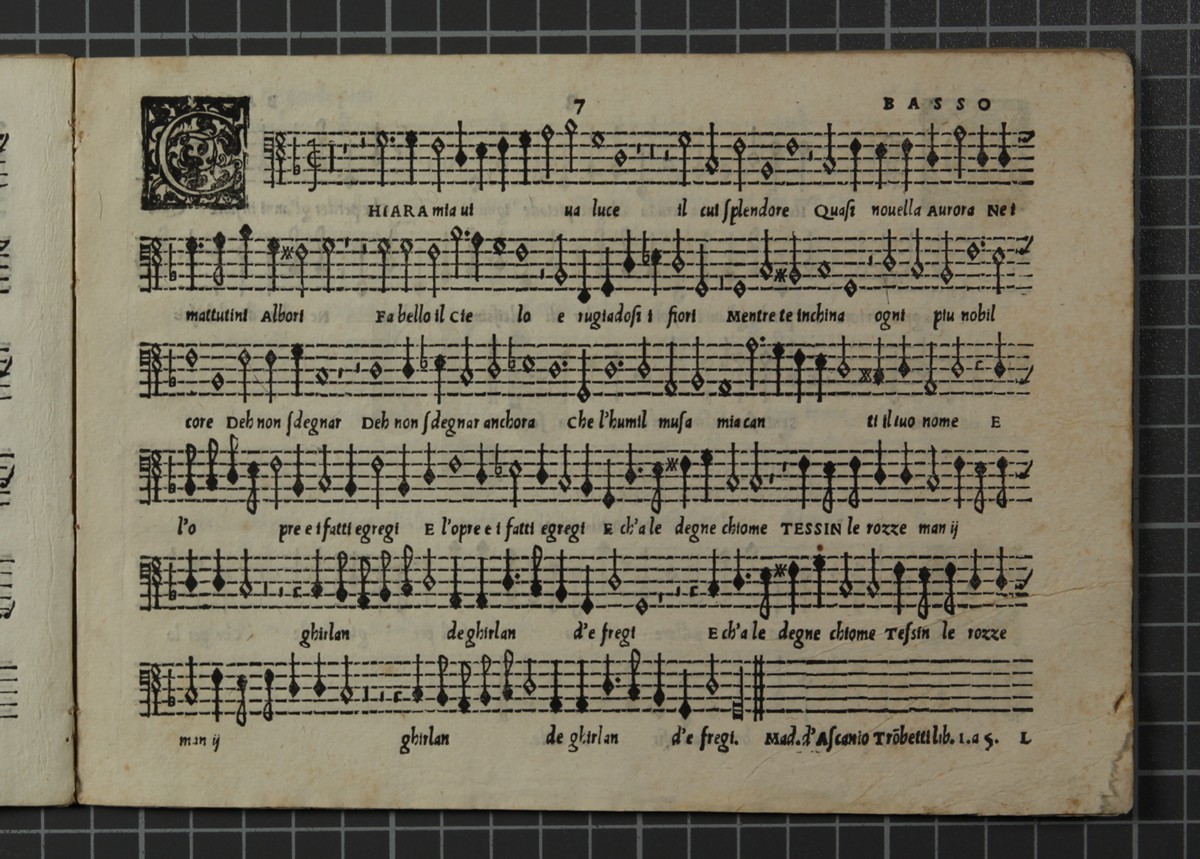 7 BASSO
C HIARA mia ui ua luce il cui ſplendore Quaſi nouella Aurora Nei
mattutini Albori Fa bello il Cie lo e rugiadoſi i fiori Mentre te inchina ogni piu nobil
core Deh non ſdegnar Deh non ſdegnar anchora Che l'humil muſa mia can ti il tuo nome E
l'o pre e i fatti egregi E l'opre e i fatti egregi E ch'a le degne chiome TESSIN le rozze man ij
ghirlan de ghirlan d'e fregi E ch'a le degne chiome Teſsin le rozze
man ij ghirlan de ghirlan d'e fregi. Mad. d'Aſcanio Trōbetti lib. 1. a 5. L